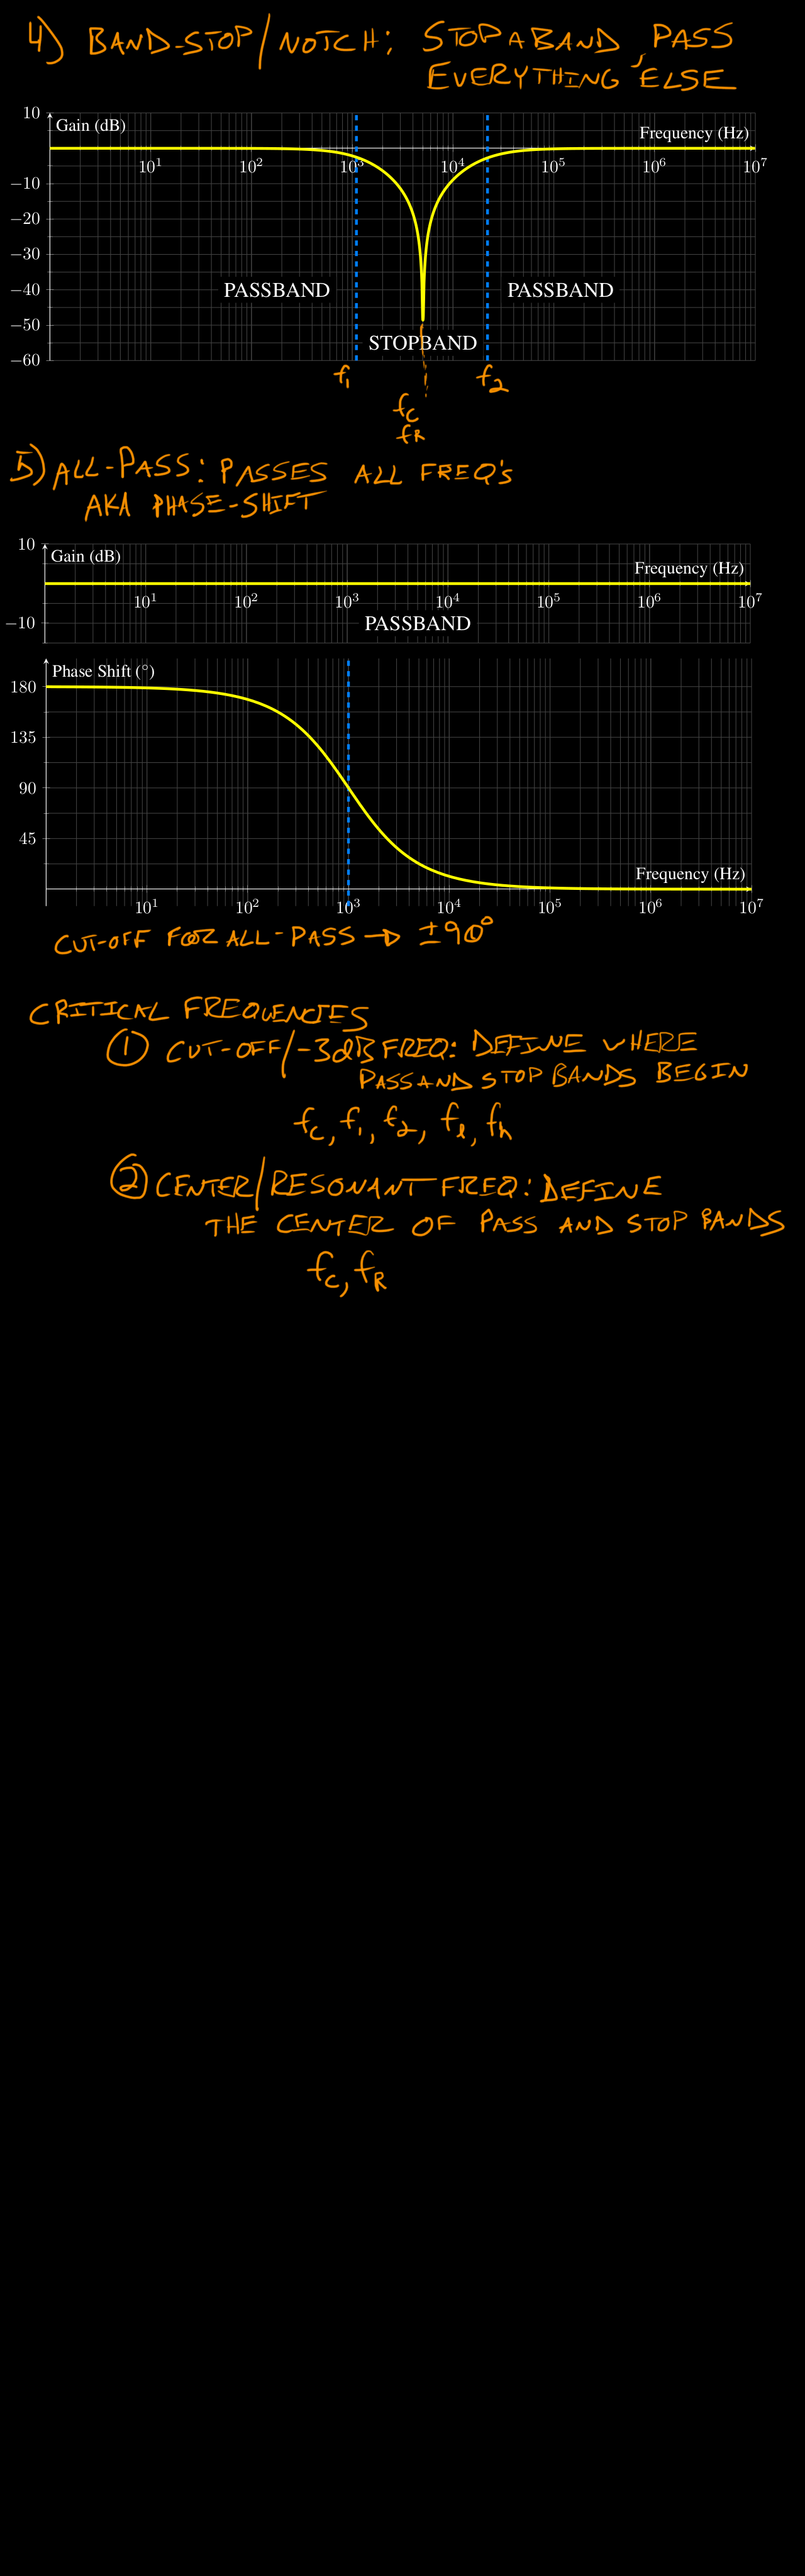 4) BAND-STOP/NOTCH: STOP A BAND, PASS
EVERYTHING ELSE
10
Gain (dB)
Frequency (Hz)
10¹ 10² 10³ 10⁴ 10⁵ 10⁶ 10⁷
−10
−20
−30
−40
PASSBAND PASSBAND
−50
STOPBAND
−60
f₁ f₂
f_C
f_R
5) ALL-PASS: PASSES ALL FREQ'S
AKA PHASE-SHIFT
10
Gain (dB)
Frequency (Hz)
10¹ 10² 10³ 10⁴ 10⁵ 10⁶ 10⁷
−10
PASSBAND
Phase Shift (°)
180
135
90
45
Frequency (Hz)
10¹ 10² 10³ 10⁴ 10⁵ 10⁶ 10⁷
CUT-OFF FOR ALL-PASS → ±90°
CRITICAL FREQUENCIES
① CUT-OFF/-3dB FREQ: DEFINE WHERE
PASS AND STOP BANDS BEGIN
f_C, f₁, f₂, f_ℓ, f_h
② CENTER/RESONANT FREQ: DEFINE
THE CENTER OF PASS AND STOP BANDS
f_C, f_R